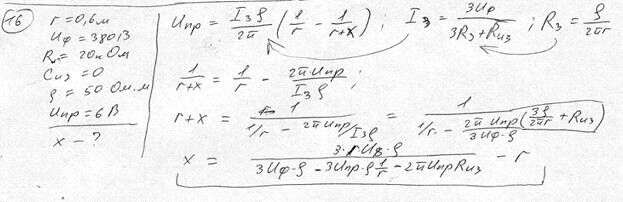 16
r = 0,6 м
Uф = 380 В
Rиз = 20 кОм
Cиз = 0
ρ = 50 Ом.м
Uпр = 6 В
x - ?
Uпр = Iз ρ / 2π (1/r - 1/(r+x)) ; Iз = 3Uф / (3Rз + Rиз) ; Rз = ρ / 2πr
1/(r+x) = 1/r - 2π Uпр / Iз ρ ;
r + x = 1 / (1/r - 2π Uпр / Iз ρ) = 1 / (1/r - 2π Uпр / 3Uф·ρ (3ρ / 2πr + Rиз))
x = 3·r Uф·ρ / (3Uф·ρ - 3Uпр·ρ 1/r - 2π Uпр Rиз) - r